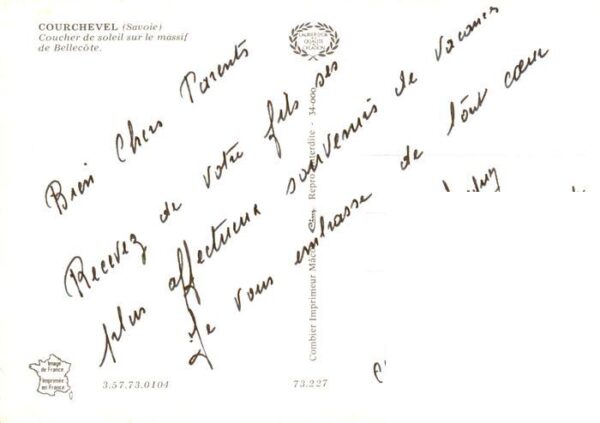 COURCHEVEL (Savoie)
Coucher de soleil sur le massif
de Bellecôte.
Bien Chers Parents
Recevez de votre fils ses
plus affectueux souvenirs de vacances
Je vous embrasse de tout cœur
Combier Imprimeur Mâcon Reproduction interdite - 34-000
Image
de France
Imprimée
en France
3.57.73.0104
73.227